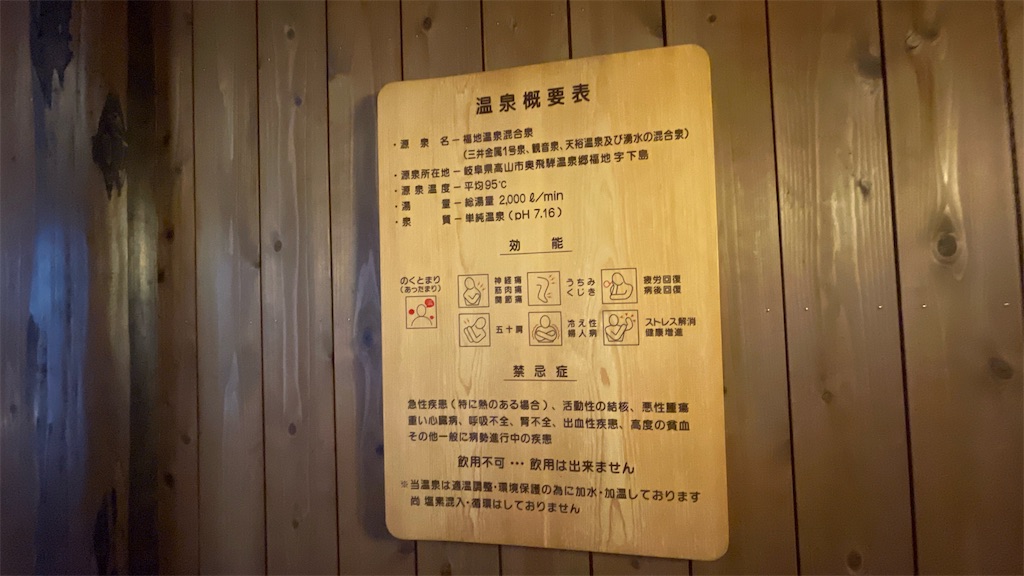 温泉概要表
・源泉名－福地温泉混合泉
(三井金属1号泉、観音泉、天裕温泉及び湧水の混合泉)
・源泉所在地－岐阜県高山市奥飛騨温泉郷福地字下島
・源泉温度－平均95℃
・湯量－総湯量 2,000ℓ/min
・泉質－単純温泉(pH 7.16)
効能
のくとまり
(あったまり)
神経痛
筋肉痛
関節痛
うちみ
くじき
疲労回復
病後回復
五十肩
冷え性
婦人病
ストレス解消
健康増進
禁忌症
急性疾患(特に熱のある場合)、活動性の結核、悪性腫瘍
重い心臓病、呼吸不全、腎不全、出血性疾患、高度の貧血
その他一般に病勢進行中の疾患
飲用不可…飲用は出来ません
※当温泉は適温調整・環境保護の為に加水・加温しております
尚 塩素混入・循環はしておりません